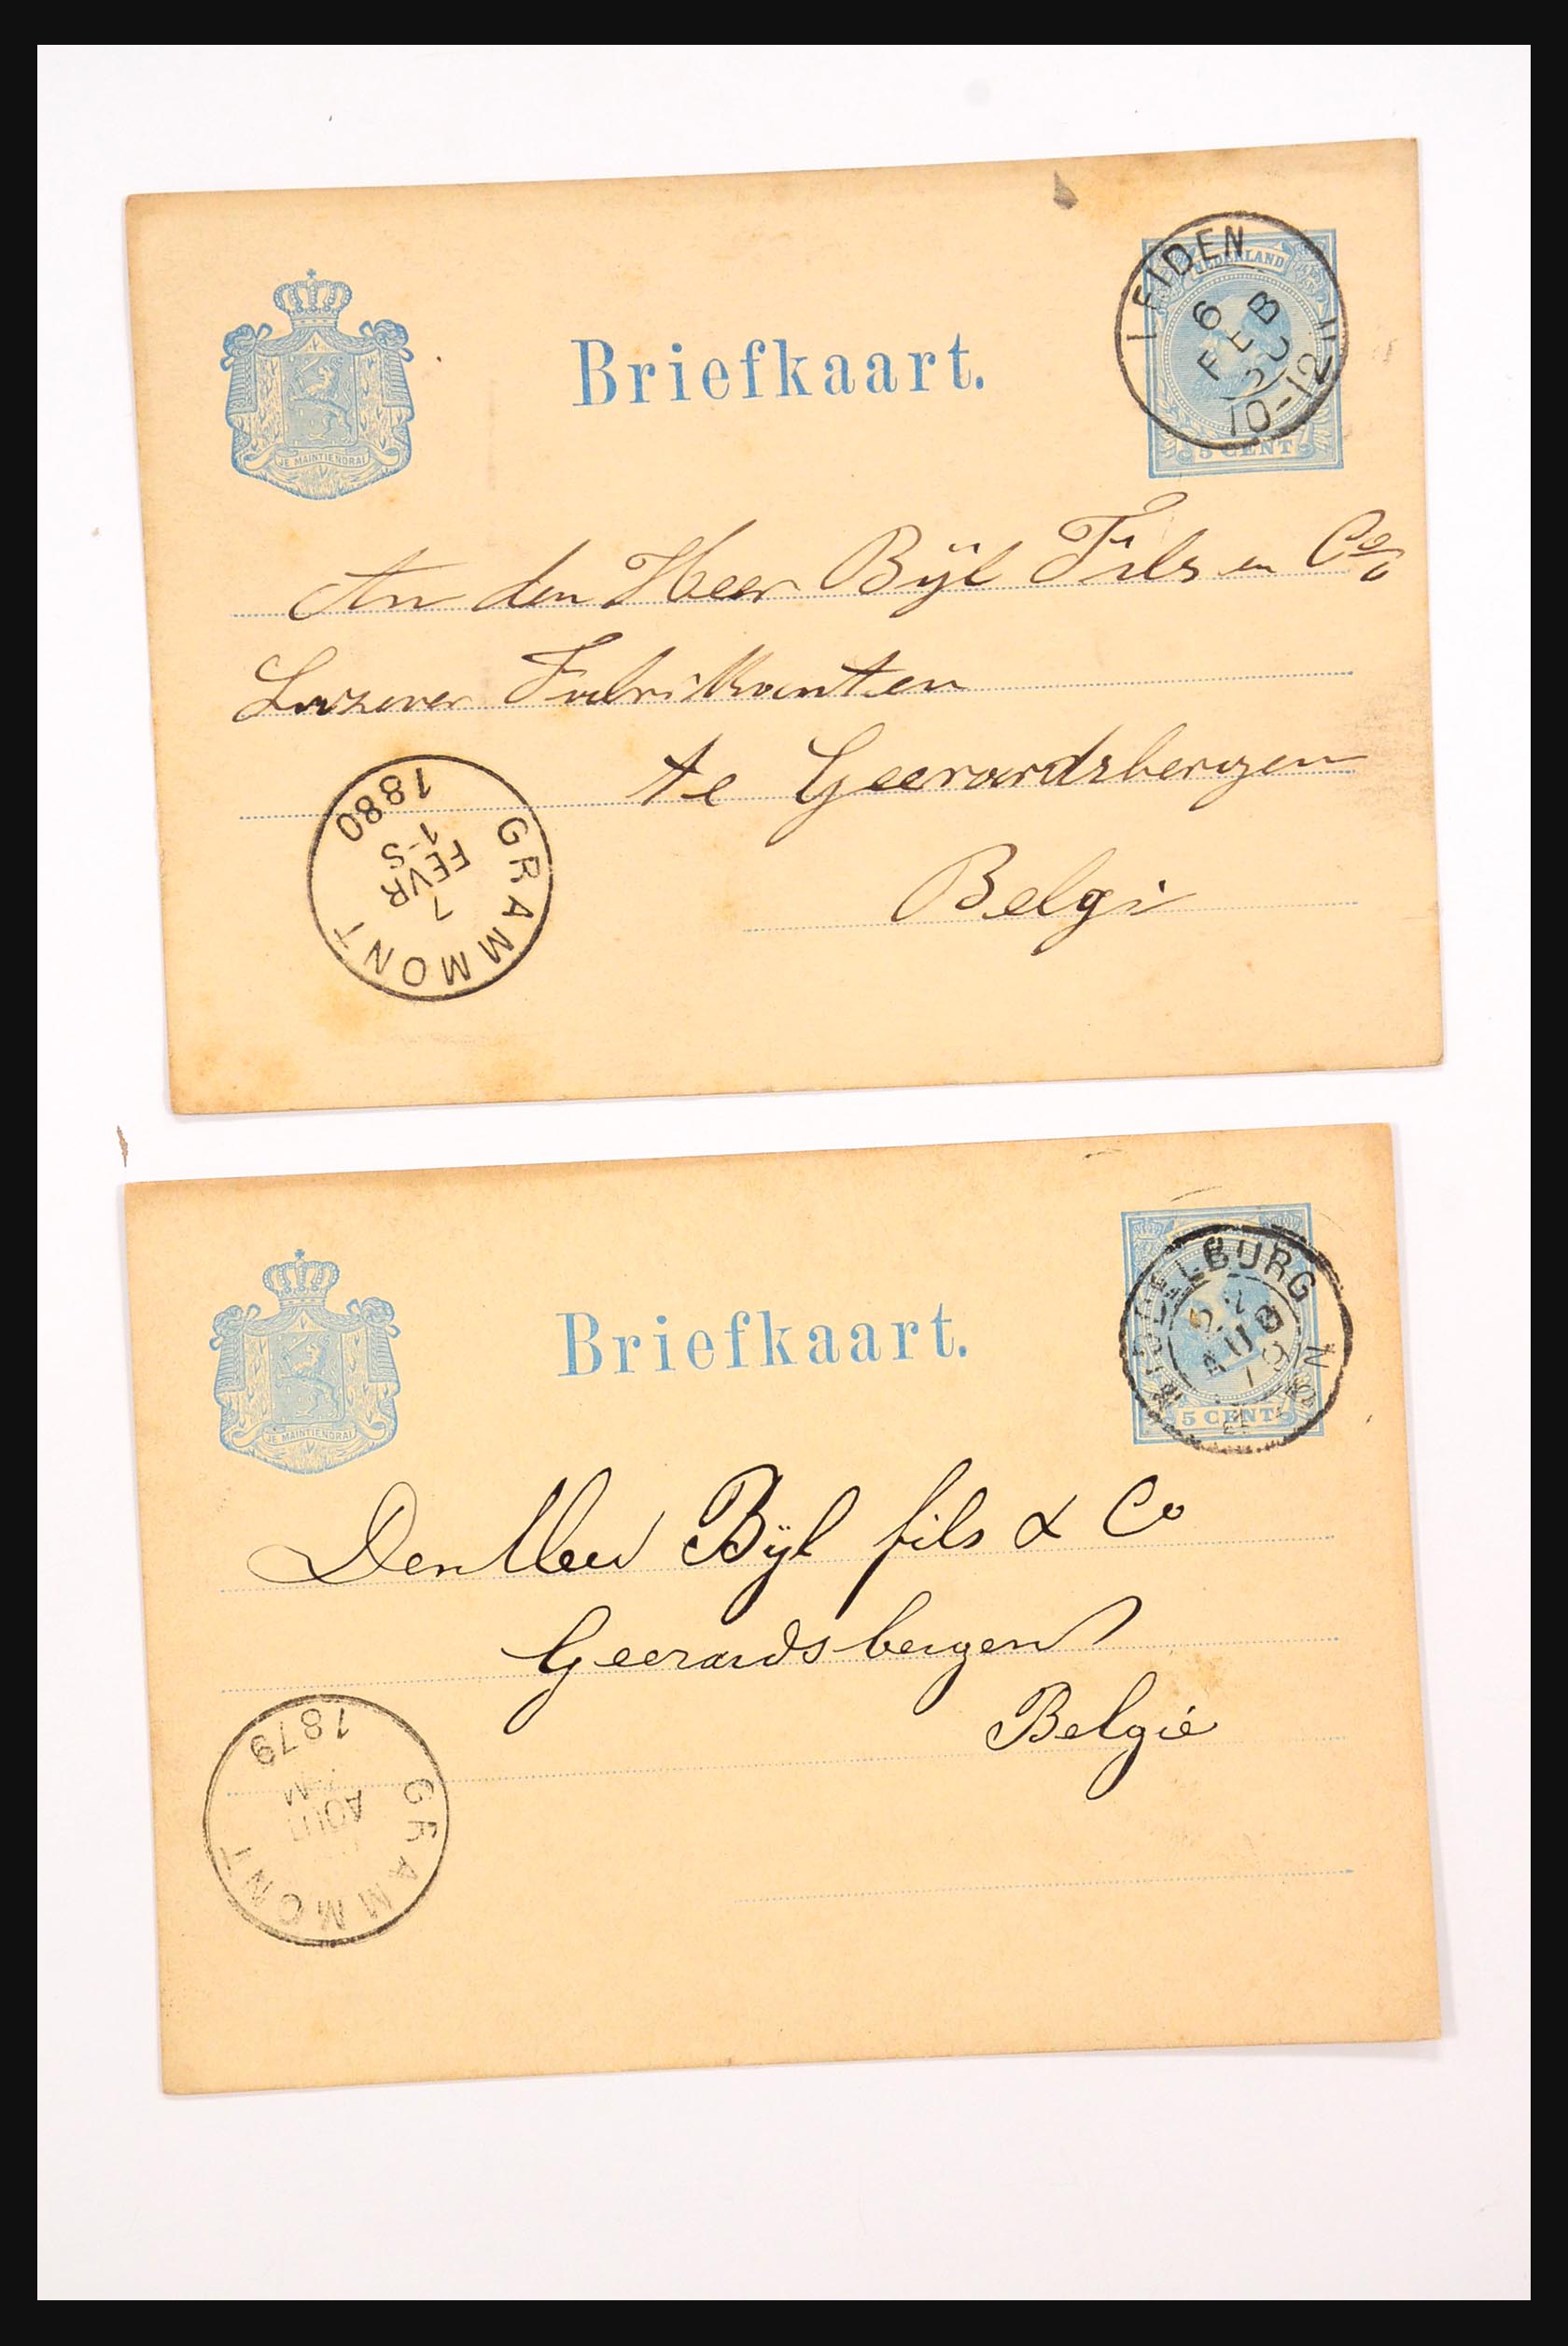 Briefkaart.
NEDERLAND
5 CENT
LEIDEN
6
FEB
80
10-12
JE MAINTIENDRAI
An den Heer Bÿl Fils en Co
Fabrikanten
te Geeraardsbergen
Belgi
GRAMMONT
7
FEVR
1-S
1880
Briefkaart.
5 CENT
MIDDELBURG
AUG
79
JE MAINTIENDRAI
Den Heer Bÿl fils & Co
Geerardsbergen
België
GRAMMONT
AOUT
1879